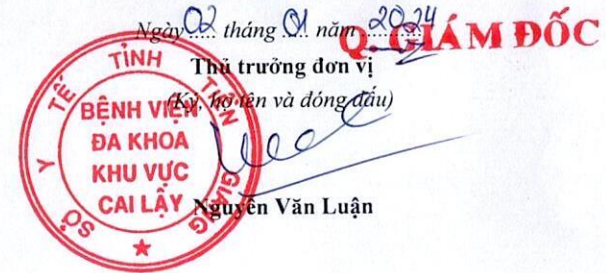 Ngày 02 tháng 01 năm 2024
Q. GIÁM ĐỐC
Thủ trưởng đơn vị
(Ký, họ tên và đóng dấu)
SỞ Y TẾ TỈNH TIỀN GIANG
BỆNH VIỆN
ĐA KHOA
KHU VỰC
CAI LẬY
Nguyễn Văn Luận